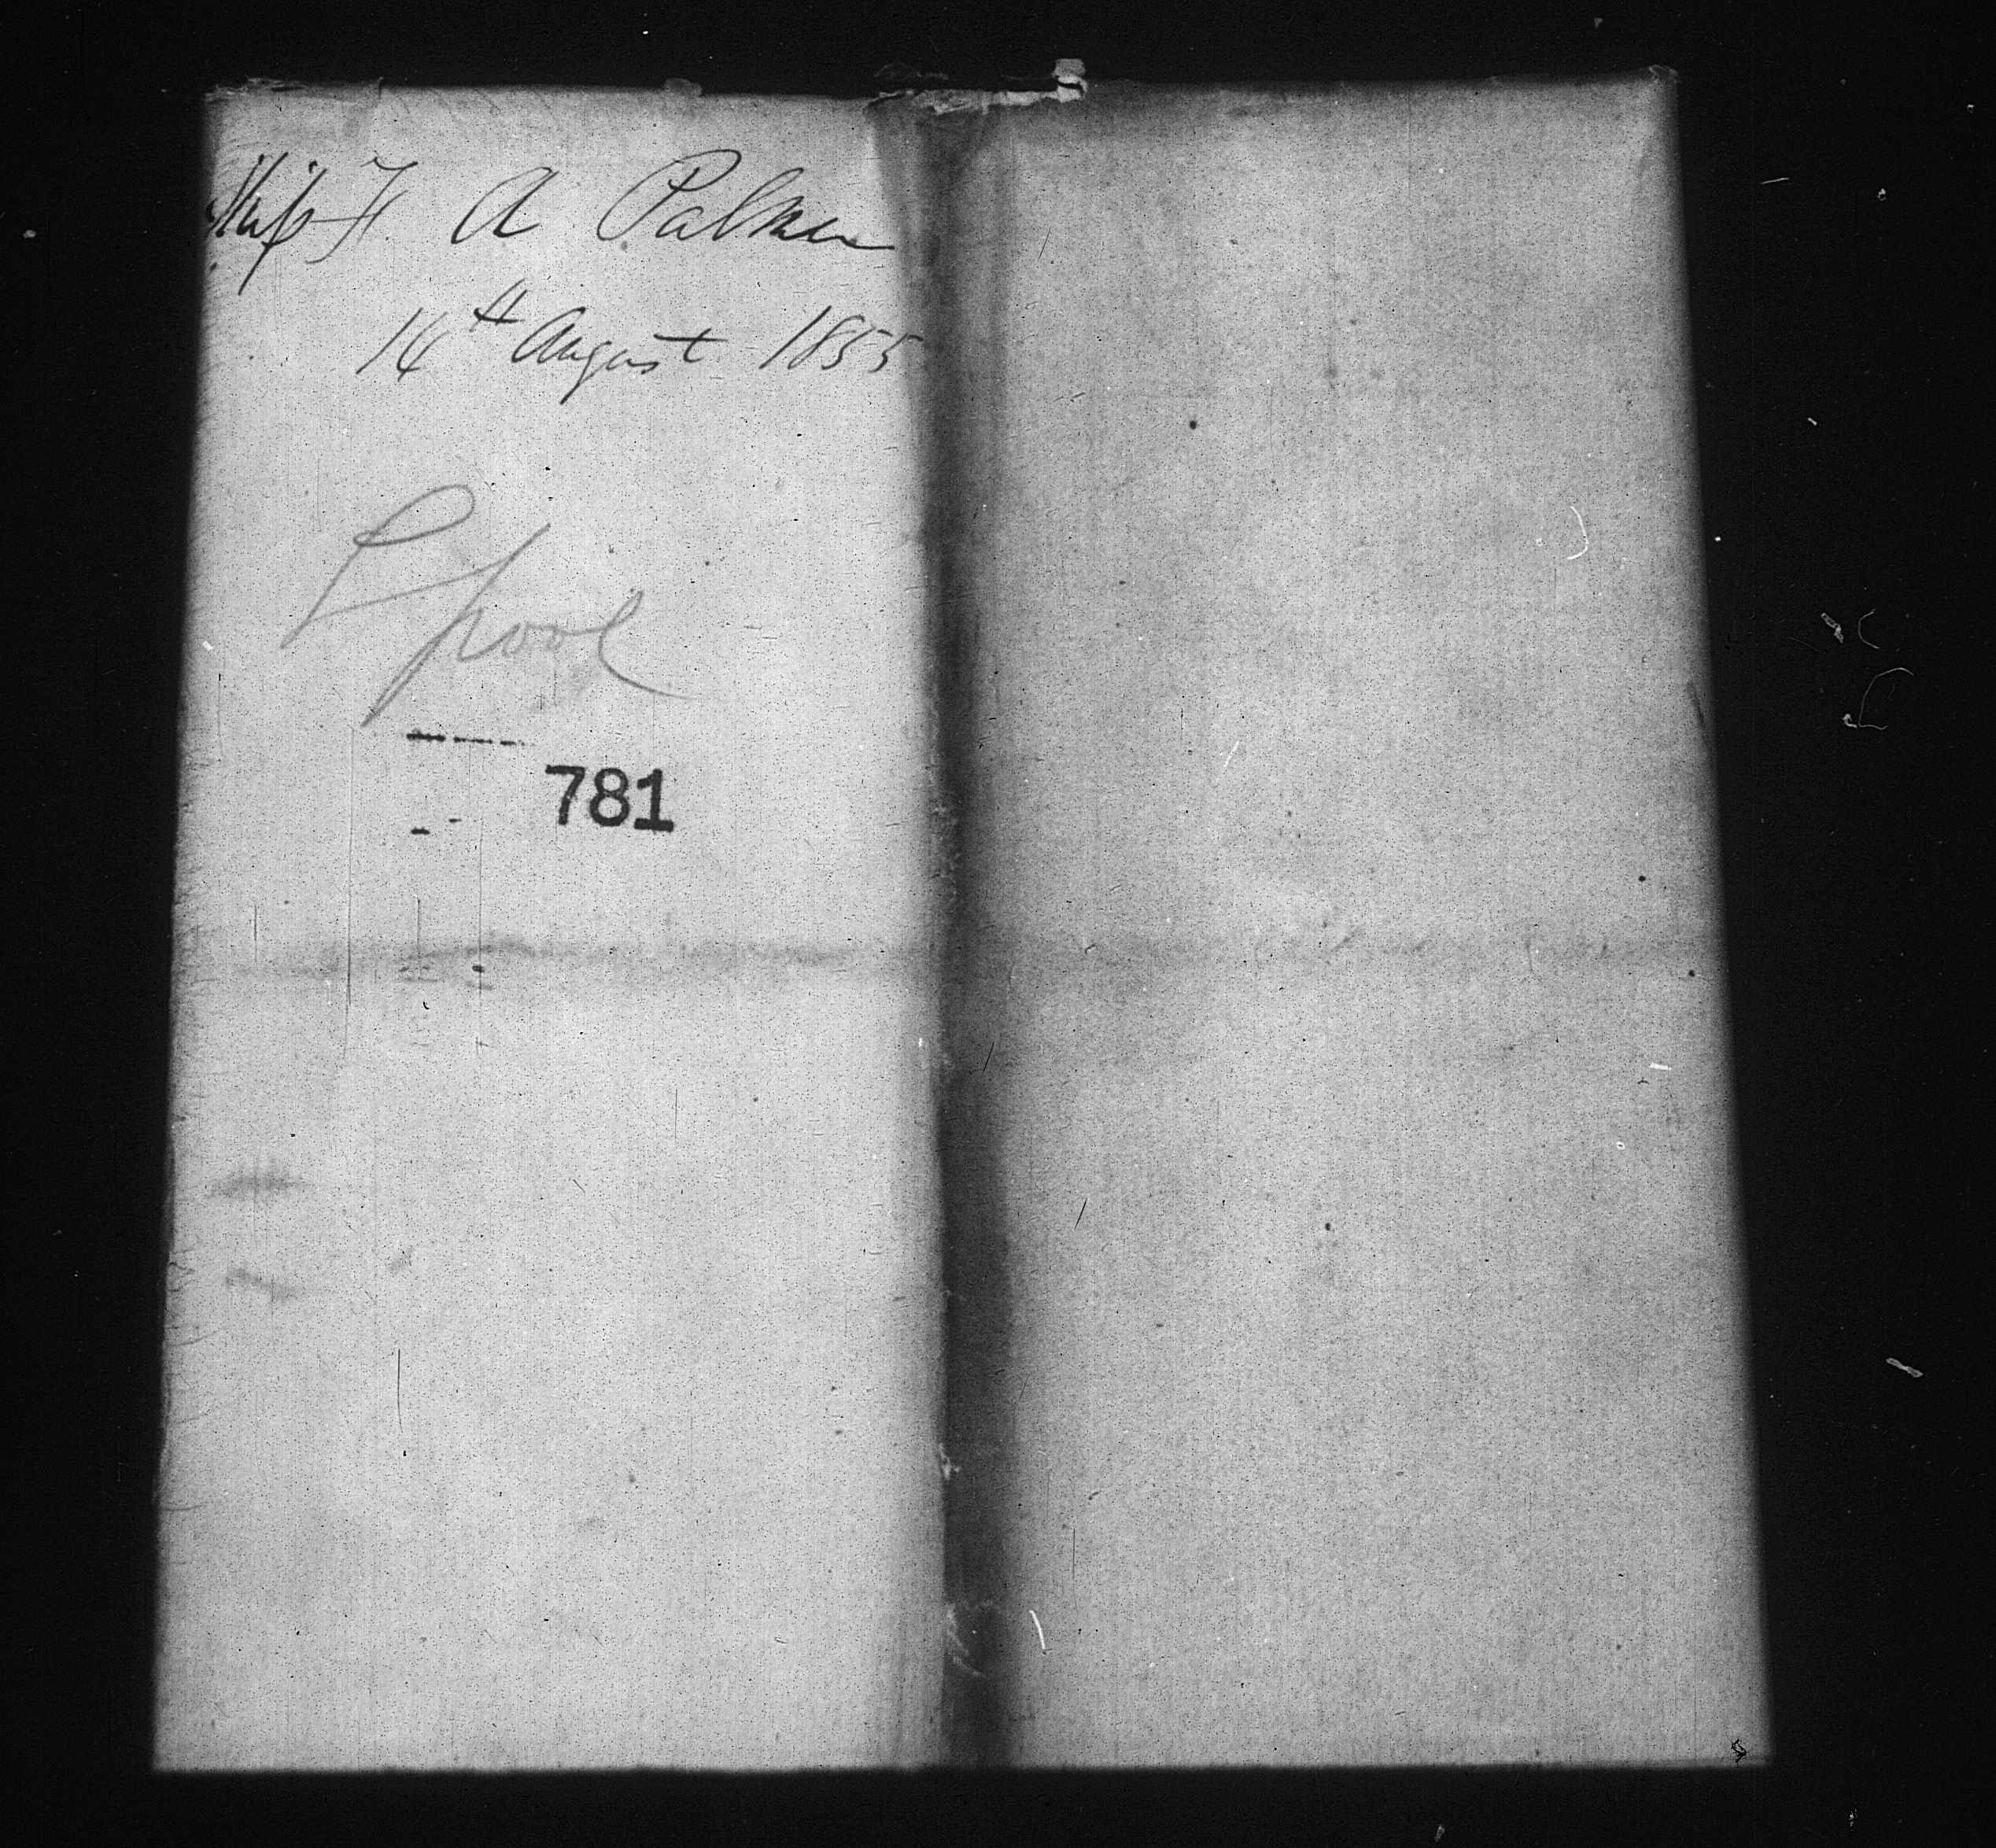 Ship F A Palmer
14th August 1855
Lpool
781